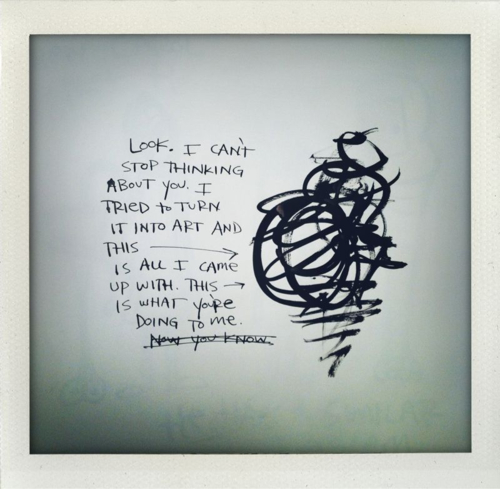 LOOK. I CAN'T
STOP THINKING
ABOUT YOU. I
TRIED TO TURN
IT INTO ART AND
THIS →
IS ALL I CAME
UP WITH. THIS →
IS WHAT YOU'RE
DOING TO ME.
NOW YOU KNOW.